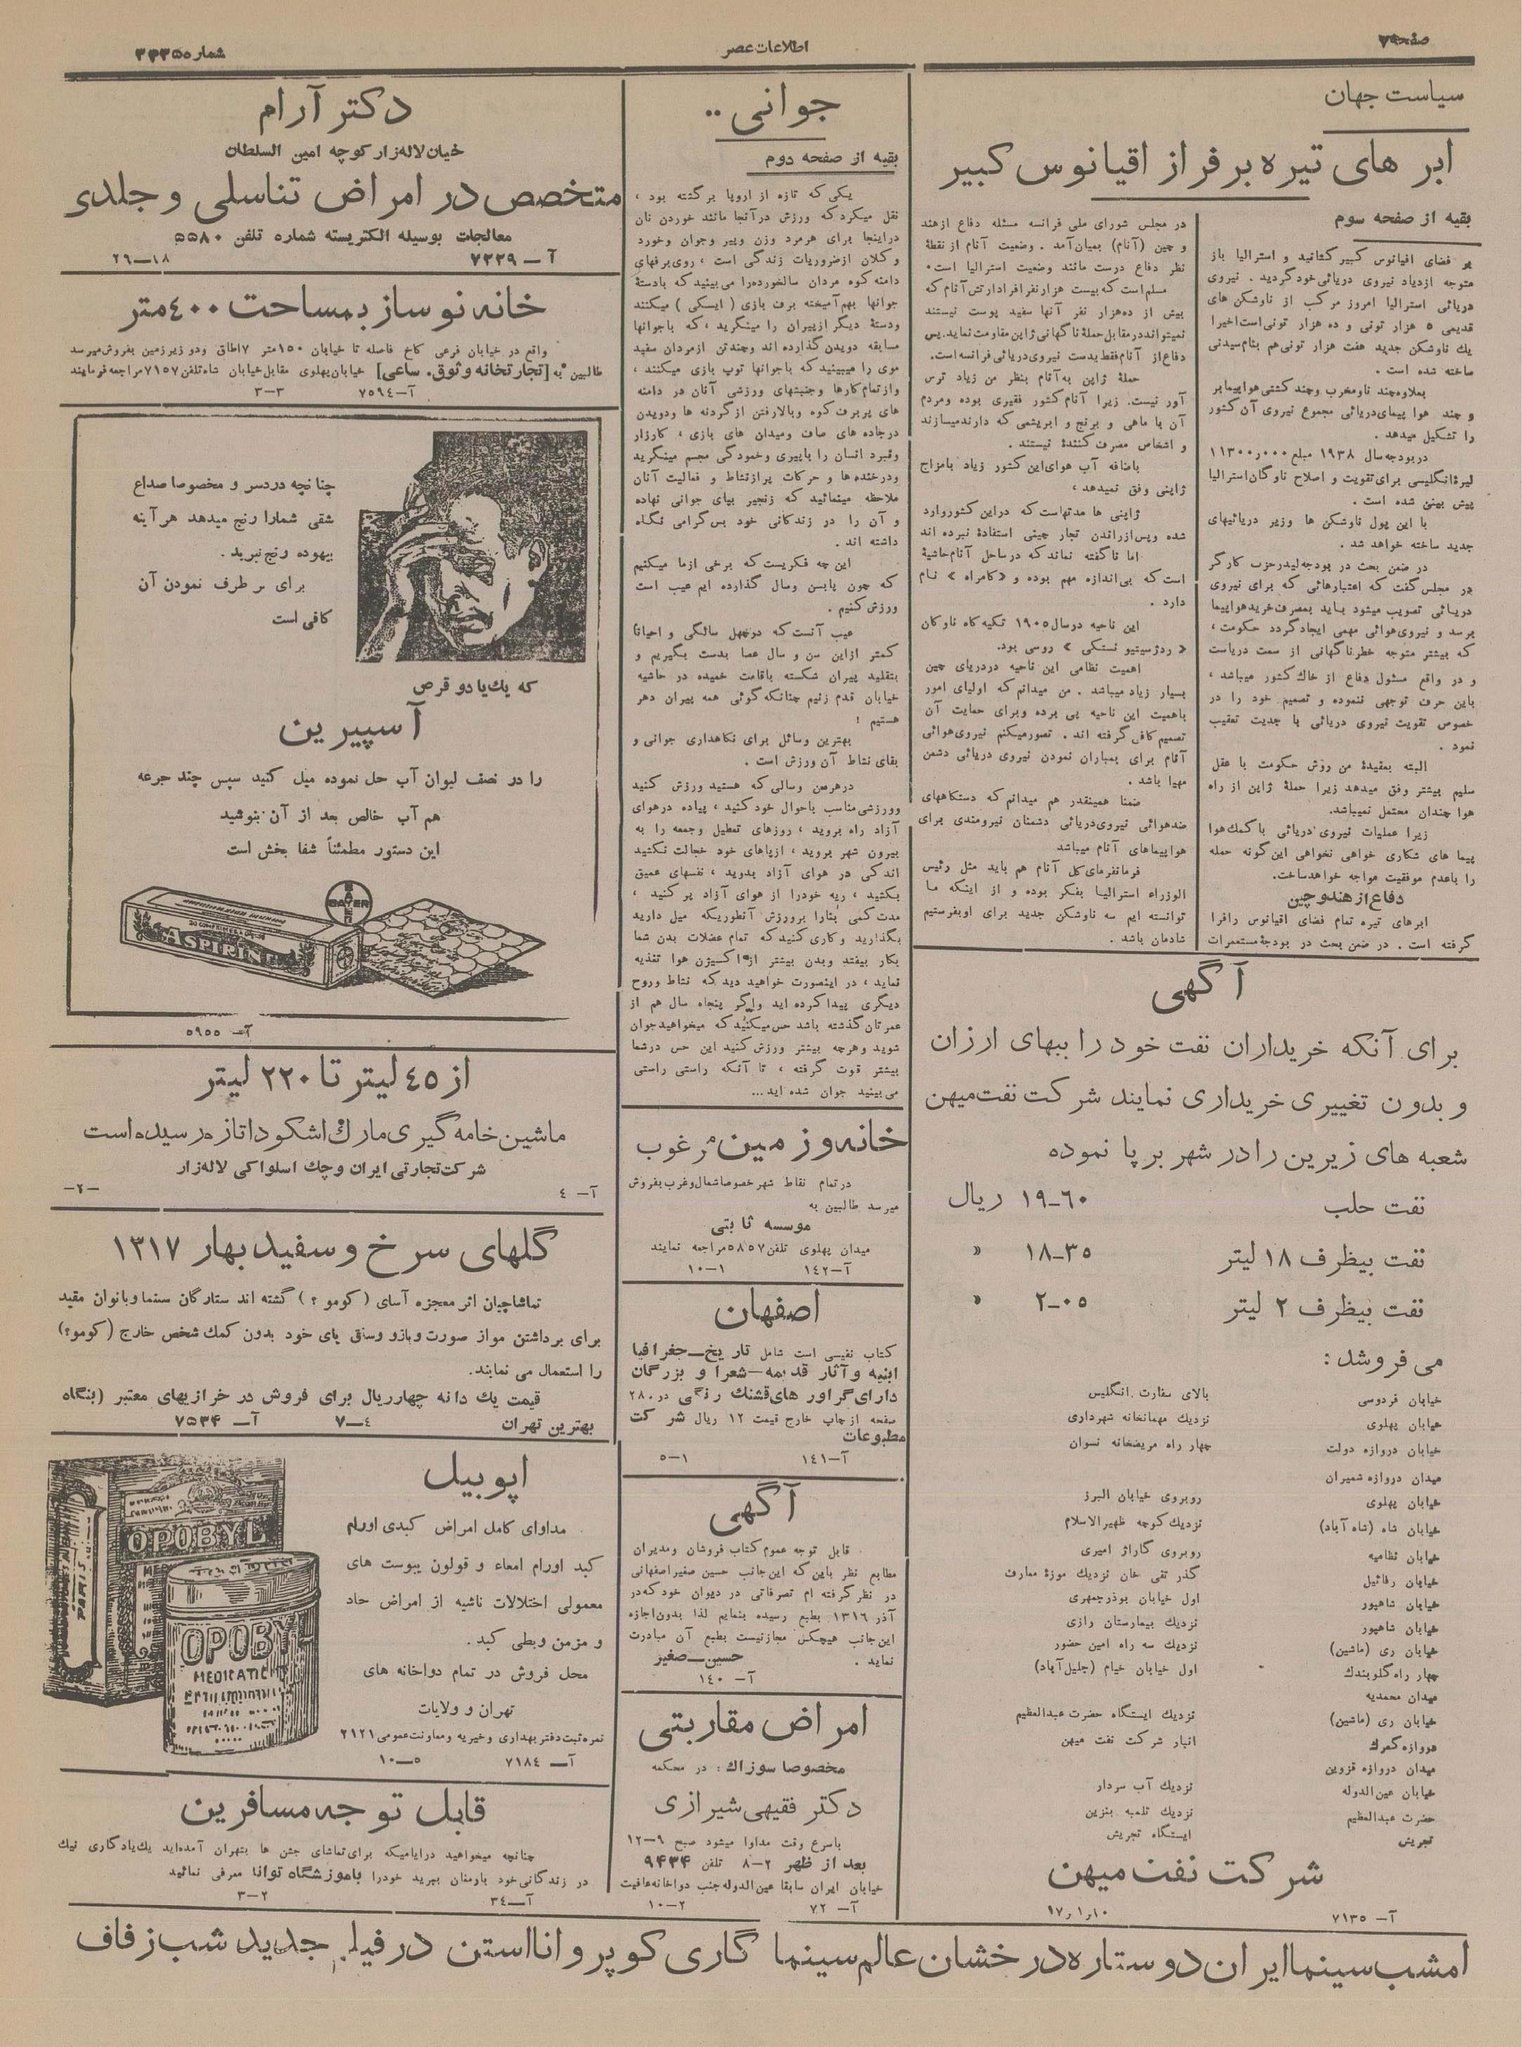 صفحه
اطلاعات عصر
سیاست جهان
ابر های تیره بر فراز اقیانوس کبیر
بقیه از صفحه سوم
بر فضای اقیانوس کبیر کشانید و استرالیا باز
متوجه ازدیاد نیروی دریائی خود گردید . نیروی
دریائی استرالیا امروز مرکب از ناوشکن های
قدیمی ۵ هزار تونی و ده هزار تونی است اخیرا
یك ناوشکن جدید هفت هزار تونی هم بنام سیدنی
ساخته شده است .
بعلاوه چند ناو مخرب و چند کشتی هواپیما بر
و چند هوا پیمای دریائی مجموع نیروی آن کشور
را تشکیل میدهد .
در بودجه سال ۱۹۳۸ مبلغ ۱۱۳۰۰ر۰۰۰
لیرهٔ انگلیسی برای تقویت و اصلاح ناوگان استرالیا
پیش بینی شده است .
با این پول ناوشکن ها وزیر دریائیهای
جدید ساخته خواهد شد .
در ضمن بحث در بودجه لیدر حزب کارگر
در مجلس گفت که اعتبارهائی که برای نیروی
دریائی تصویب میشود باید بمصرف خرید هواپیما
برسد و نیروی هوائی مهمی ایجاد گردد حکومت ،
که بیشتر متوجه خطر ناگهانی از سمت دریاست
و در واقع مسئول دفاع از خاك کشور میباشد ،
باین حرف توجهی ننموده و تصمیم خود را در
خصوص تقویت نیروی دریائی با جدیت تعقیب
نمود .
البته بعقیدهٔ من روش حکومت با عقل
سلیم بیشتر وفق میدهد زیرا حملهٔ ژاپن از راه
هوا چندان محتمل نمیباشد.
زیرا عملیات نیروی دریائی با کمك هوا
پیما های شکاری خواهی نخواهی این گونه حمله
را با عدم موفقیت مواجه خواهد ساخت.
دفاع از هند و چین
ابرهای تیره تمام فضای اقیانوس را فرا
گرفته است . در ضمن بحث در بودجهٔ مستعمرات
در مجلس شورای ملی فرانسه مسئله دفاع از هند
و چین (آنام) بمیان آمد . وضعیت آنام از نقطهٔ
نظر دفاع درست مانند وضعیت استرالیا است .
مسلم است که بیست هزار نفر افراد ارتش آنام که
بیش از ده هزار نفر آنها سفید پوست نیستند
نمیتواند در مقابل حملهٔ ناگهانی ژاپن مقاومت نماید. پس
دفاع از آنام فقط بدست نیروی دریائی فرانسه است.
حملهٔ ژاپن به آنام بنظر من زیاد ترس
آور نیست. زیرا آنام کشور فقیری بوده و مردم
آن با ماهی و برنج و ابریشمی که دارند میسازند
و اشخاص مصرف کنندهٔ نیستند .
باضافه آب هوای این کشور زیاد بامزاج
ژاپنی وفق نمیدهد ،
ژاپنی ها مدتهاست که در این کشور وارد
شده و پس از راندن تجار چینی استفادهٔ نبرده اند
اما ناگفته نماند که در ساحل آنام حاشیهٔ
است که بی اندازه مهم بوده و « کامراه » نام
دارد .
این ناحیه در سال ۱۹۰۵ تکیه گاه ناوگان
« ردژسیتیو نستکی » روسی بود.
اهمیت نظامی این ناحیه در دریای چین
بسیار زیاد میباشد . من میدانم که اولیای امور
باهمیت این ناحیه پی برده و برای حمایت آن
تصمیم کافی گرفته اند . تصور میکنم نیروی هوائی
آنام برای بمباران نمودن نیروی دریائی دشمن
مهیا باشد .
ضمنا همینقدر هم میدانم که دستگاههای
ضد هوائی نیروی دریائی دشمنان نیرومندی برای
هواپیماهای آنام میباشد
فرمانفرمای کل آنام هم باید مثل رئیس
الوزراء استرالیا بفکر بوده و از اینکه ما
توانسته ایم سه ناوشکن جدید برای او بفرستیم
شادمان باشد .
آگهی
برای آنکه خریداران نفت خود را ببهای ارزان
و بدون تغییری خریداری نمایند شرکت نفت میهن
شعبه های زیرین را در شهر برپا نموده
نفت حلب ۶۰-۱۹ ریال
نفت بیظرف ۱۸ لیتر ۳۵-۱۸ «
نفت بیظرف ۲ لیتر ۰۵-۲ «
می فروشد :
خیابان فردوسی بالای سفارت انگلیس
خیابان پهلوی نزدیك مهمانخانه شهرداری
خیابان دروازه دولت چهار راه مریضخانه نسوان
میدان دروازه شمیران
خیابان پهلوی روبروی خیابان البرز
خیابان شاه (شاه آباد) نزدیك کوچه ظهیرالاسلام
خیابان نظامیه روبروی گاراژ امیری
خیابان رفائیل گذر تقی خان نزدیك موزهٔ معارف
خیابان شاهپور اول خیابان بوذرجمهری
خیابان شاهپور نزدیك بیمارستان رازی
خیابان ری (ماشین) نزدیك سه راه امین حضور
چهار راه گلوبندك اول خیابان خیام (جلیل آباد)
میدان محمدیه
خیابان ری (ماشین) نزدیك ایستگاه حضرت عبدالعظیم
دروازه گمرك انبار شرکت نفت میهن
میدان دروازه قزوین
خیابان عین الدوله نزدیك آب سردار
حضرت عبدالعظیم نزدیك تلمبه بنزین
تجریش ایستگاه تجریش
شرکت نفت میهن
آ- ۷۱۳۵ ۱۰ر۱ر۹۷
جوانی ..
بقیه از صفحه دوم
یکی که تازه از اروپا برگشته بود ،
نقل میکرد که ورزش در آنجا مانند خوردن نان
در اینجا برای هر مرد وزن وپیر وجوان وخورد
و کلان از ضروریات زندگی است ، روی برفهای
دامنه کوه مردان سالخورده را می بینید که بادستهٔ
جوانها بهم آمیخته برف بازی ( ایسکی ) میکنند
ودستهٔ دیگر از پیران را مینگرید ، که باجوانها
مسابقه دویدن گذارده اند وچند تن از مردان سفید
موی را میبینید که باجوانها توپ بازی میکنند ،
واز تمام کارها وجنبشهای ورزشی آنان در دامنه
های پر برف کوه وبالا رفتن از گردنه ها ودویدن
در جاده های صاف ومیدان های بازی ، کارزار
ونبرد انسان را باپیری وخمودگی مجسم مینگرید
ودر خنده ها و حرکات پر از نشاط و فعالیت آنان
ملاحظه مینمائید که زنجیر بپای جوانی نهاده
و آن را در زندگانی خود بس گرامی نگاه
داشته اند .
این چه فکریست که برخی از ما میکنیم
که چون پابسن وسال گذارده ایم عیب است
ورزش کنیم .
عیب آنست که در چهل سالگی و احیاناً
کمتر از این سن و سال عصا بدست بگیریم و
بتقلید پیران شکسته باقامت خمیده در حاشیه
خیابان قدم زنیم چنانکه گوئی همه پیران دهر
هستیم !
بهترین وسائل برای نگاهداری جوانی و
بقای نشاط آن ورزش است .
در هر سن وسالی که هستید ورزش کنید
وورزشی مناسب باحوال خود کنید ، پیاده در هوای
آزاد راه بروید ، روزهای تعطیل وجمعه را به
بیرون شهر بروید ، از پاهای خود خجالت نکشید
اندکی در هوای آزاد بدوید ، نفسهای عمیق
بکشید ، ریه خود را از هوای آزاد پر کنید ،
مدت کمی بنا را بر ورزش آنطوریکه میل دارید
بگذارید و کاری کنید که تمام عضلات بدن شما
بکار بیفتد وبدن بیشتر از اکسیژن هوا تغذیه
نماید ، در اینصورت خواهید دید که نشاط وروح
دیگری پیدا کرده اید واگر پنجاه سال هم از
عمرتان گذشته باشد حس میکنید که میخواهید جوان
شوید وهرچه بیشتر ورزش کنید این حس در شما
بیشتر قوت گرفته ، تا آنکه راستی راستی
می بینید جوان شده اید ...
خانه و زمین مرغوب
در تمام نقاط شهر خصوصا شمال و غرب بفروش
میرسد طالبین به
موسسه ثابتی
میدان پهلوی تلفن ۵۸۵۷ مراجعه نمایند
آ-۱۴۲ ۱-۱۰
اصفهان
کتاب نفیسی است شامل تاریخ-جغرافیا
ابنیه و آثار قدیمه-شعرا و بزرگان
دارای گراورهای قشنگ رنگی در ۲۸۰
صفحه از چاپ خارج قیمت ۱۲ ریال شرکت
مطبوعات
آ-۱۴۱ ۱-۵
آگهی
قابل توجه عموم کتاب فروشان ومدیران
مطابع نظر باین که این جانب حسین صغیر اصفهانی
در نظر گرفته ام تصرفاتی در دیوان خود که در
آذر ۱۳۱۶ بطبع رسیده بنمایم لذا بدون اجازه
این جانب هیچکس مجاز نیست بطبع آن مبادرت
نماید . حسین-صغیر
آ- ۱۴۰
امراض مقاربتی
مخصوصا سوزاك : در محکمه
دکتر فقیهی شیرازی
باسرع وقت مداوا میشود صبح ۹-۱۲
بعد از ظهر ۲-۸ تلفن ۹۴۳۴
خیابان ایران سابقا عین الدوله جنب دواخانه عافیت
آ- ۷۲ ۲-۱۰
دکتر آرام
خیابان لاله زار کوچه امین السلطان
متخصص در امراض تناسلی و جلدی
معالجات بوسیله الکتریسته شماره تلفن ۵۵۸۰
آ- ۷۲۲۹ ۱۸-۲۶
خانه نوساز بمساحت ۴۰۰ متر
واقع در خیابان فرعی کاخ فاصله تا خیابان ۱۵۰ متر ۷ اطاق ودو زیر زمین بفروش میرسد
طالبین به [تجارتخانه وثوق. ساعی] خیابان پهلوی مقابل خیابان شاه تلفن ۷۱۵۷ مراجعه فرمایند
آ-۷۵۹۴ ۳-۳
چنانچه دردسر و مخصوصا صداع
شقی شما را رنج میدهد هر آینه
بیهوده رنج نبرید .
برای بر طرف نمودن آن
کافی است
که یك یا دو قرص
آسپیرین
را در نصف لیوان آب حل نموده میل کنید سپس چند جرعه
هم آب خالص بعد از آن بنوشید
این دستور مطمئناً شفا بخش است
BAYER
ASPIRIN
آ- ۵۹۵۵
از ۴۵ لیتر تا ۲۲۰ لیتر
ماشین خامه گیری مارك اشکودا تازه رسیده است
شرکت تجارتی ایران وچك اسلواکی لاله زار
آ- ۴ -۲-
گلهای سرخ و سفید بهار ۱۳۱۷
تماشاچیان اثر معجزه آسای (کومو ؟) گشته اند ستارگان سینما وبانوان مقید
برای برداشتن مو از صورت وبازو وساق پای خود بدون کمك شخص خارج (کومو؟)
را استعمال می نمایند.
قیمت یك دانه چهار ریال برای فروش در خرازیهای معتبر (بنگاه
بهترین تهران آ- ۷۵۳۴ ۴-۷
اپوبیل
مداوای کامل امراض کبدی اورام
کبد اورام امعاء و قولون یبوست های
معمولی اختلالات ناشیه از امراض حاد
و مزمن وبطی کبد .
محل فروش در تمام دواخانه های
تهران و ولایات
نمره ثبت دفتر بهداری وخیریه ومعاونت عمومی ۲۱۲۱
آ- ۷۱۸۴ ۵-۱۰
OPOBYL
OPOBY
MEDICATIO
قابل توجه مسافرین
چنانچه میخواهید در ایامیکه برای تماشای جشن ها بتهران آمده اید یك یادگاری نیك
در زندگانی خود بارمغان ببرید خود را باموزشگاه توانا معرفی نمائید
آ-۳۴ ۲-۳
امشب سینما ایران دو ستاره درخشان عالم سینما گاری کوپر و انااستن در فیلم جدید شب زفاف